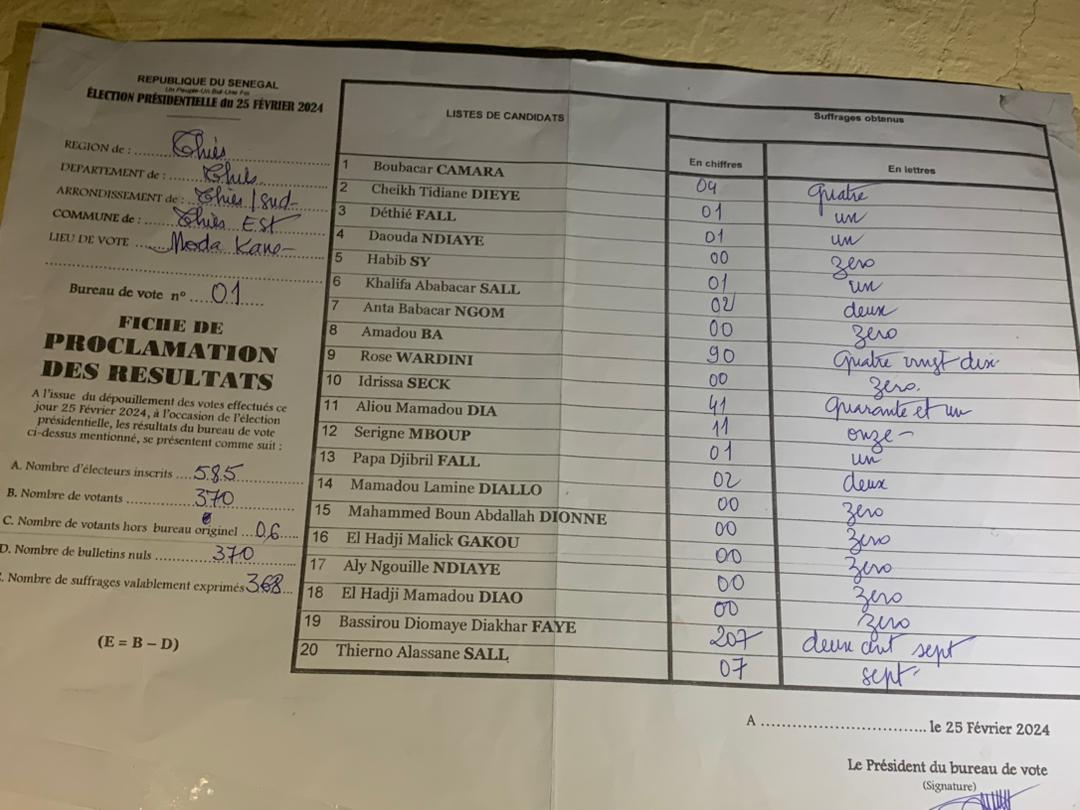 REPUBLIQUE DU SENEGAL
Un Peuple-Un But-Une Foi
ÉLECTION PRÉSIDENTIELLE du 25 FÉVRIER 2024
REGION de : Thiès
DEPARTEMENT de : Thiès
ARRONDISSEMENT de : Thiès/Sud
COMMUNE de : Thiès EST
LIEU DE VOTE Moda Kane
Bureau de vote n° 01
FICHE DE
PROCLAMATION
DES RESULTATS
A l'issue du dépouillement des votes effectués ce
jour 25 Février 2024, à l'occasion de l'élection
présidentielle, les résultats du bureau de vote
ci-dessus mentionné, se présentent comme suit :
A. Nombre d'électeurs inscrits 585
B. Nombre de votants 370
C. Nombre de votants hors bureau originel 06
D. Nombre de bulletins nuls 370
. Nombre de suffrages valablement exprimés 368
(E = B – D)
LISTES DE CANDIDATS Suffrages obtenus
En chiffres En lettres
1 Boubacar CAMARA 04 quatre
2 Cheikh Tidiane DIEYE 01 un
3 Déthié FALL 01 un
4 Daouda NDIAYE 00 zero
5 Habib SY 01 un
6 Khalifa Ababacar SALL 02 deux
7 Anta Babacar NGOM 00 zero
8 Amadou BA 90 Quatre vingt dix
9 Rose WARDINI 00 zero.
10 Idrissa SECK 41 Quarante et un
11 Aliou Mamadou DIA 11 onze
12 Serigne MBOUP 01 un
13 Papa Djibril FALL 02 deux
14 Mamadou Lamine DIALLO 00 zero
15 Mahammed Boun Abdallah DIONNE 00 zero
16 El Hadji Malick GAKOU 00 zero
17 Aly Ngouille NDIAYE 00 zero
18 El Hadji Mamadou DIAO 00 zero
19 Bassirou Diomaye Diakhar FAYE 207 deux cent sept
20 Thierno Alassane SALL 07 sept
A .................................. le 25 Février 2024
Le Président du bureau de vote
(Signature)